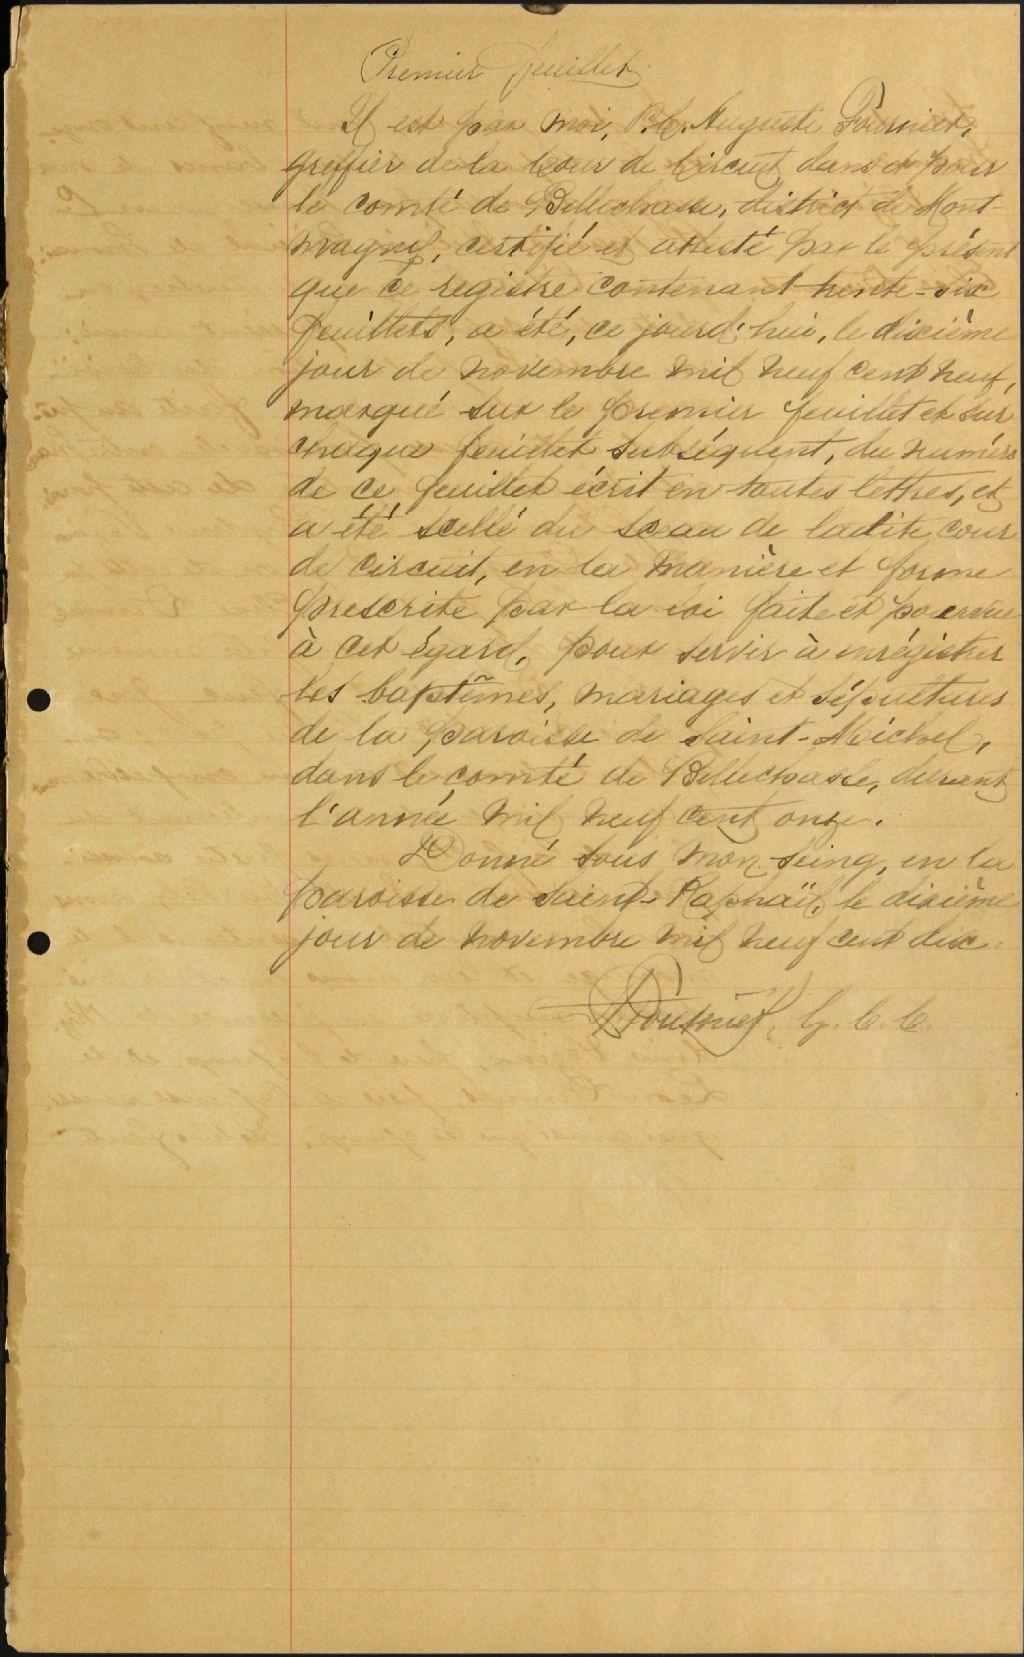 Premier feuillet
Il est par moi, P. C. Auguste Fournier,
greffier de la Cour de Circuit dans et pour
le comté de Bellechasse, district de Mont-
magny, certifié et attesté par le présent
que ce registre contenant trente-six
feuillets, a été, ce jourd'hui, le dixième
jour de novembre mil neuf cent neuf,
marqué sur le premier feuillet et sur
chaque feuillet subséquent, du numéro
de ce feuillet écrit en toutes lettres, et
a été scellé du sceau de ladite cour
de circuit, en la manière et forme
prescrite par la loi faite et pourvue
à cet égard, pour servir à enrégistrer
les baptêmes, mariages et sépultures
de la paroisse de Saint-Michel,
dans le comté de Bellechasse, durant
l'année mil neuf cent onze.
Donné sous mon seing, en la
paroisse de Saint-Raphaël, le dixième
jour de novembre mil neuf cent dix.
Fournier, G. C. C.